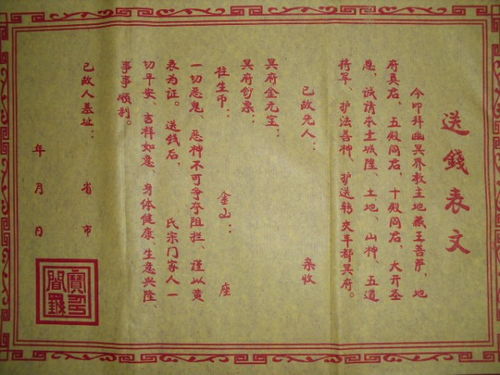 送錢表文
今叩拜幽冥界教主地藏王菩萨，地
府真君，五殿阎君，十殿阎君，大开圣
恩，诚请本土城隍、土地、山神、五道
将军、护法善神，护送转交丰都冥府。
已故先人： 亲收
冥府金元宝：
冥府钞票：
往生币： 金山： 座
一切恶鬼、恶神不可争夺阻拦、谨以黄
表为证。送钱后， 氏宗门家人一
切平安、吉祥如意、身体健康、生意兴隆、
事事顺利。
已故人墓址： 省 市
年 月 日